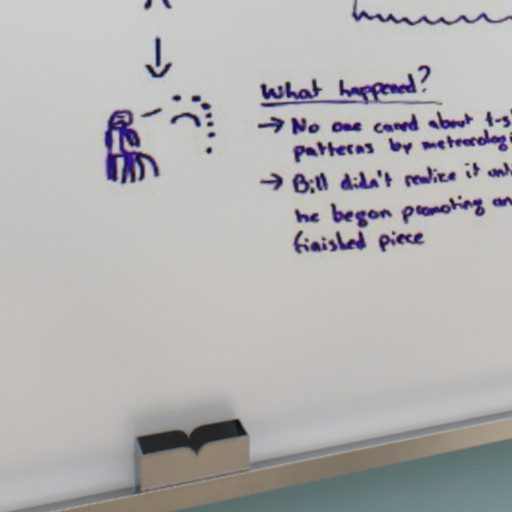 What happened?
→ No one cared about t-s
patterns by meteorologi
→ Bill didn't realize it unt
he began promoting an
finished piece